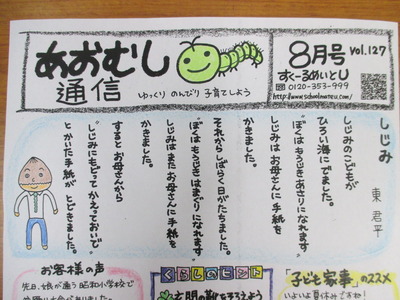 あおむし
通信
ゆっくり のんびり 子育てしよう
8月号 vol.127
すくーるめいとU
0120-353-999
http://www.schoolmateu.com/
しじみ
東 君平
しじみのこどもが
ひろい海にでました。
"ぼくは もうじきあさりになれます"
しじみは お母さんに 手紙を
かきました。
それからしばらく 日がたちました。
"ぼくは もうじき はまぐりになれます"
しじみは また お母さんに 手紙を
かきました。
すると お母さんから
"しじみにもどって かえっておいで"
と かいた手紙が とどきました。
お客様の声
先日、娘が通う 昭和小学校で
くらしのヒント
玄関の靴をそろえよう
「子ども家事」のススメ
いよいよ夏休みですね!